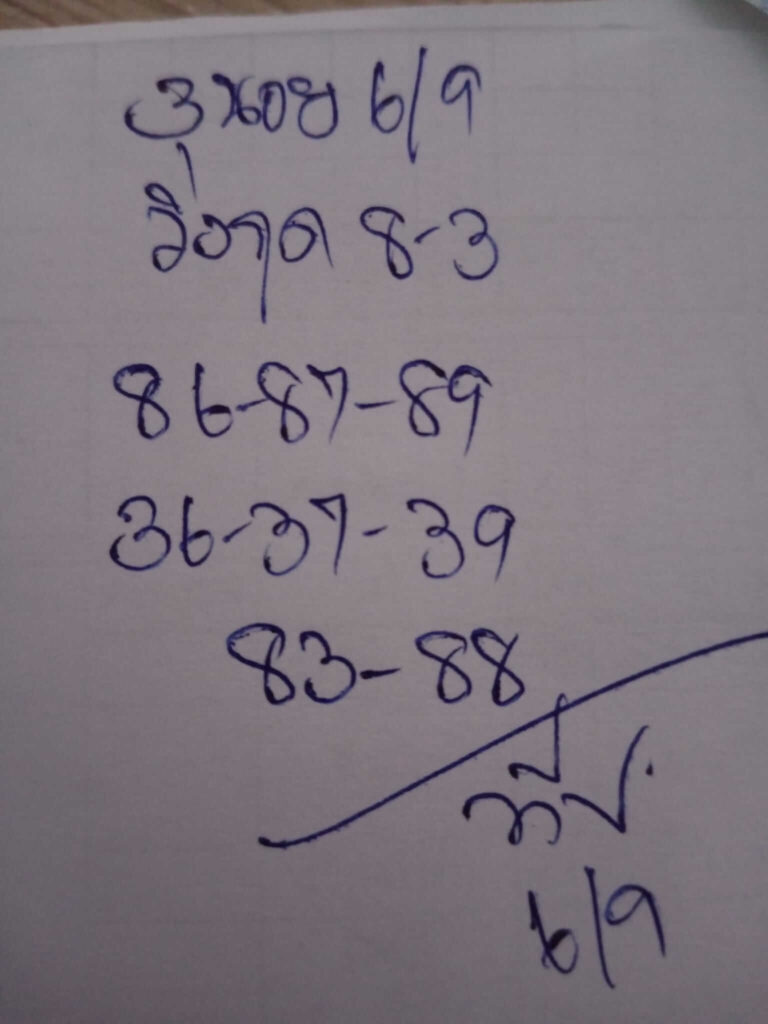 ฮานอย 6/9
วิ่งรูด 8-3
86-87-89
36-37-39
83-88
6/9